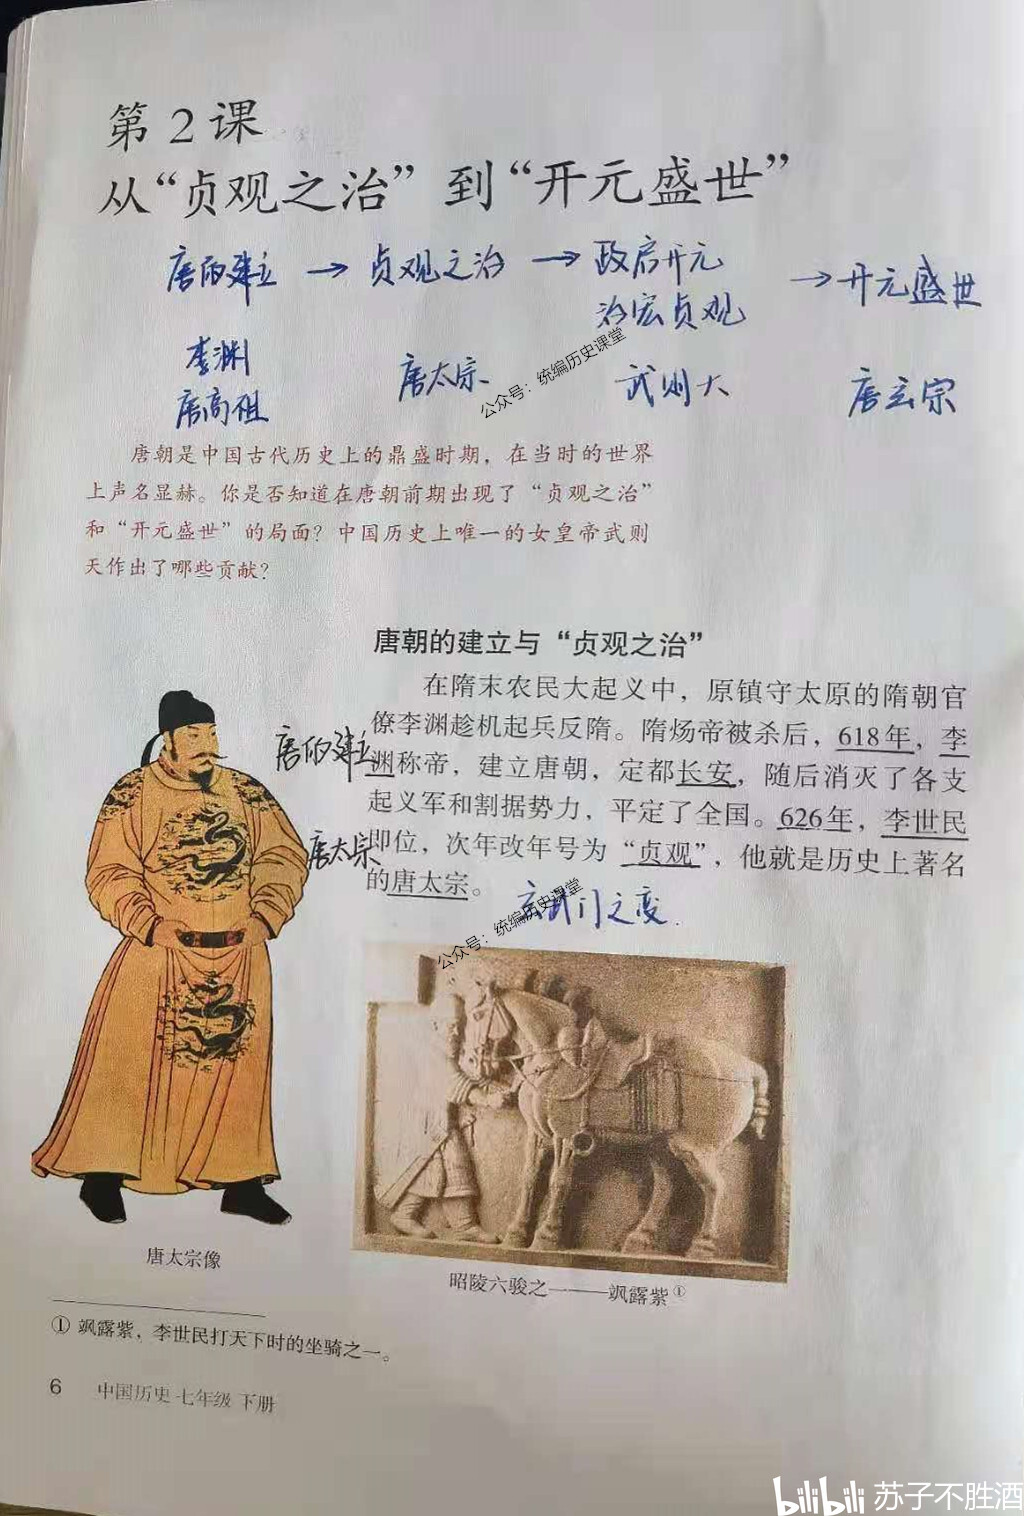 第2课
从“贞观之治”到“开元盛世”
唐的建立 → 贞观之治 → 政启开元 → 开元盛世
治宏贞观
李渊
唐高祖 唐太宗 武则天 唐玄宗
公众号：统编历史课堂
唐朝是中国古代历史上的鼎盛时期，在当时的世界
上声名显赫。你是否知道在唐朝前期出现了“贞观之治”
和“开元盛世”的局面？中国历史上唯一的女皇帝武则
天作出了哪些贡献？
唐朝的建立与“贞观之治”
在隋末农民大起义中，原镇守太原的隋朝官
僚李渊趁机起兵反隋。隋炀帝被杀后，618年，李
唐的建立
渊称帝，建立唐朝，定都长安，随后消灭了各支
起义军和割据势力，平定了全国。626年，李世民
唐太宗
即位，次年改年号为“贞观”，他就是历史上著名
的唐太宗。
玄武门之变
公众号：统编历史课堂
唐太宗像
昭陵六骏之一——飒露紫①
① 飒露紫，李世民打天下时的坐骑之一。
6 中国历史 七年级 下册
bilibili 苏子不胜酒